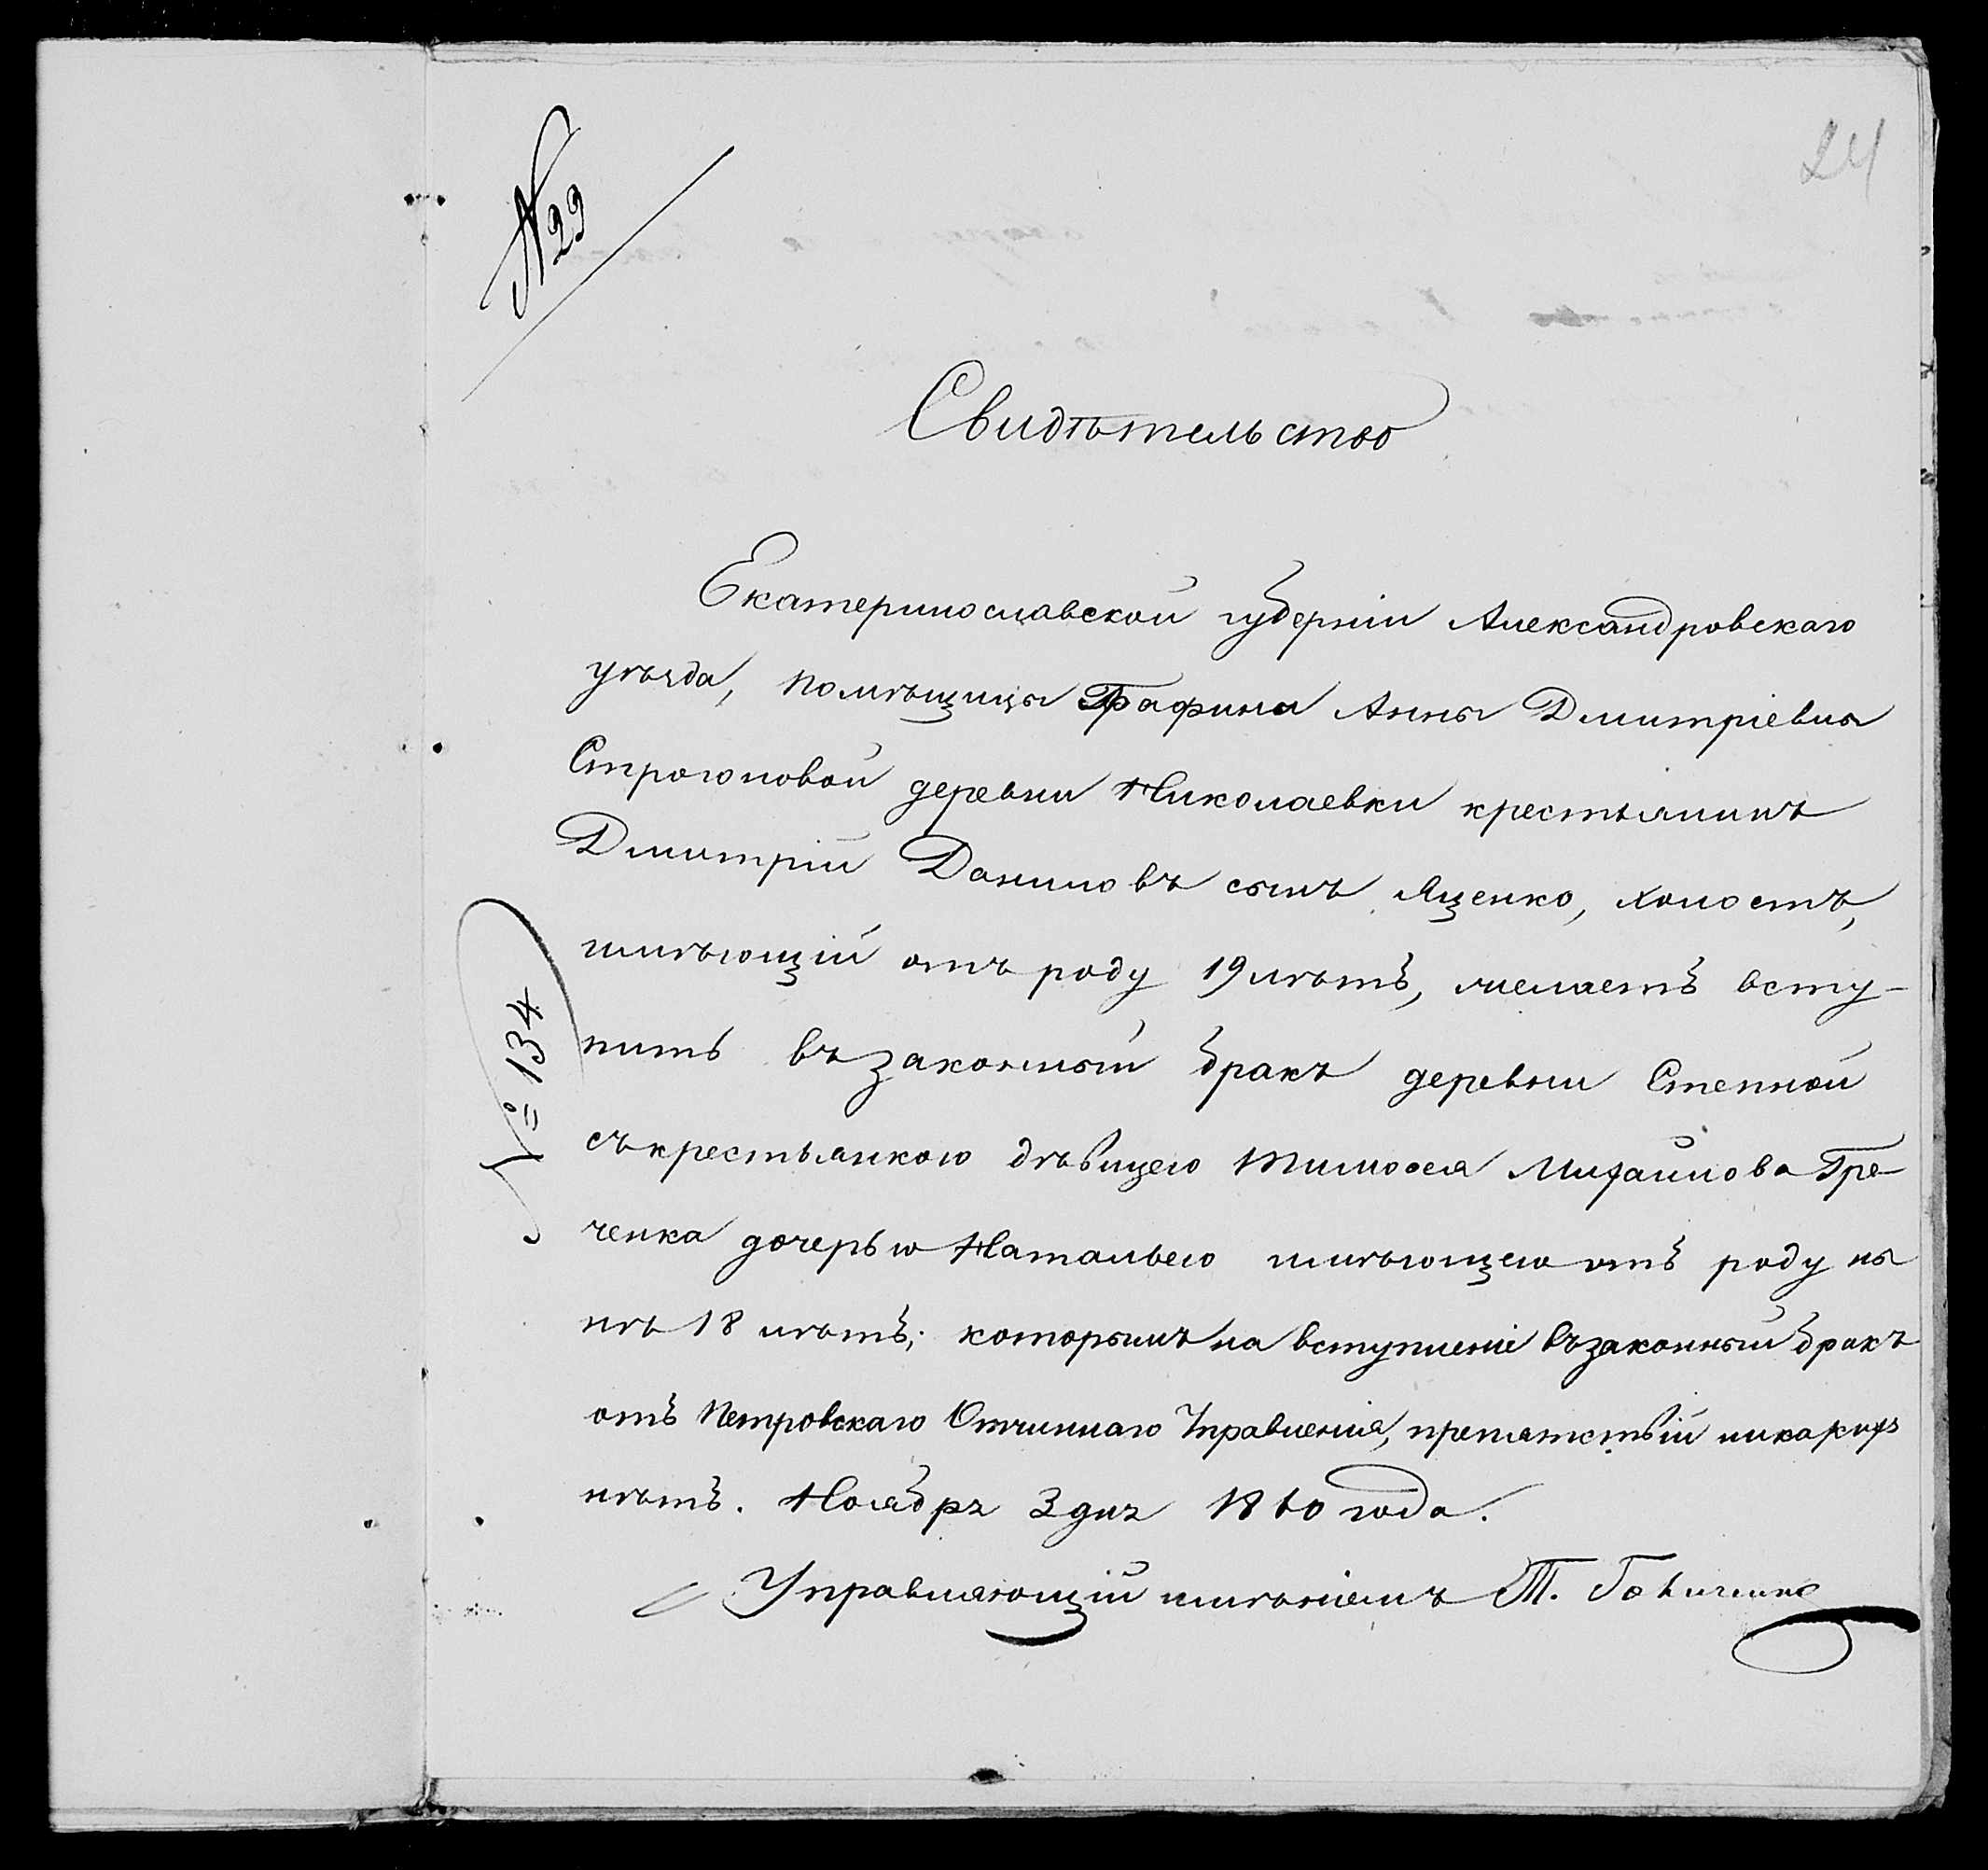 24
№ 23
Свидѣтельство
Екатеринославской губерніи Александровскаго
уѣзда, помѣщицы Графини Анны Дмитріевны
Строгоновой деревни Николаевки крестьянинъ
Дмитрій Даниловъ сынъ Яценко, холостъ,
имѣющій отъ роду 19 лѣтъ, желаетъ всту-
пить въ законный бракъ деревни Степной
съ крестьянкою дѣвицею Тимофея Михайлова Гре-
ченка дочерью Натальею имѣющею отъ роду ны
нѣ 18 лѣтъ; которымъ на вступленіе въ законный бракъ
отъ Петровскаго Отчиннаго Управленія, препятствій никакихъ
нѣтъ. Ноябръ 3 днъ 1860 года.
Управляющій имѣніемъ Т.
№ 134